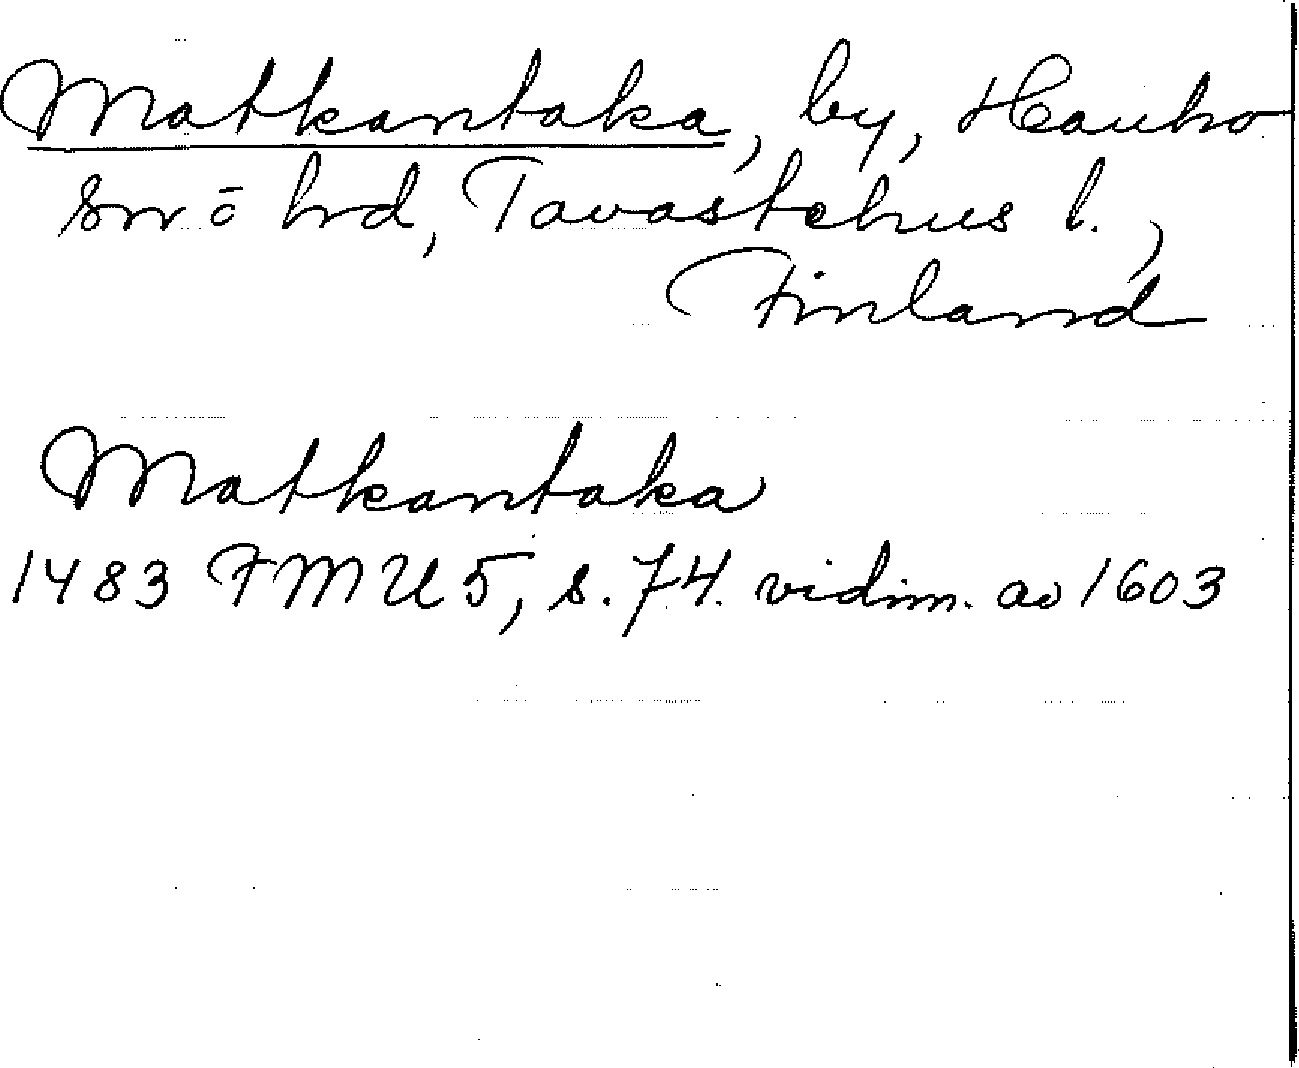 Matkantaka, by, Hauho
sn ō hd, Tavastehus l.,
Finland
Matkantaka
1483 FMU 5, s. 74. vidim. av 1603